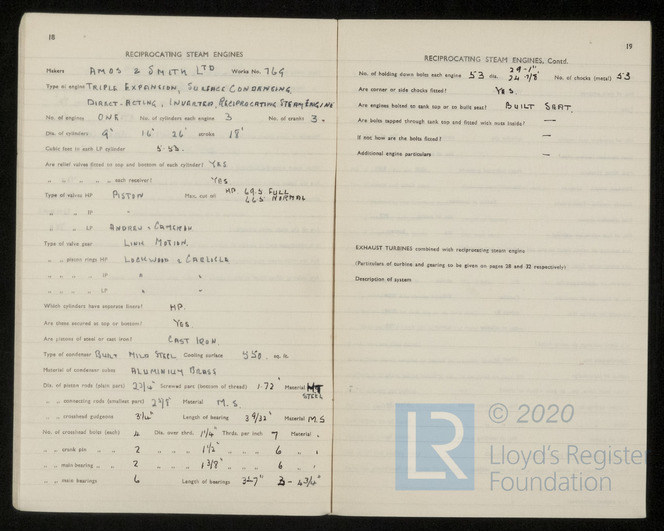 18
RECIPROCATING STEAM ENGINES
Makers AMOS & SMITH LTD Works No. 769
Type of engine TRIPLE EXPANSION, SURFACE CONDENSING,
DIRECT-ACTING, INVERTED, RECIPROCATING STEAM ENGINE
No. of engines ONE. No. of cylinders each engine 3 No. of cranks 3.
Dia. of cylinders 9" 16" 26" stroke 18"
Cubic feet in each LP cylinder 5.53.
Are relief valves fitted to top and bottom of each cylinder? YES
" " " " each receiver? YES.
Type of valves HP PISTON Max. cut off HP. 69.5 FULL
66.5 NORMAL
" " IP "
" " LP ANDREW & CAMERON
Type of valve gear LINK MOTION.
" " piston rings HP LOCKWOOD & CARLISLE
" " " " IP " "
" " " " LP " "
Which cylinders have separate liners? HP.
Are these secured at top or bottom? YES.
Are pistons of steel or cast iron? CAST IRON.
Type of condenser BUILT MILD STEEL Cooling surface 550. sq. ft.
Material of condenser tubes ALUMINIUM BRASS
Dia. of piston rods (plain part) 2 3/4" Screwed part (bottom of thread) 1.72" Material STEEL
" " connecting rods (smallest part) 2 7/8 Material M.S.
" " crosshead gudgeons 3 1/4" Length of bearing 3 9/32" Material M.S
No. of crosshead bolts (each) 4 Dia. over thrd. 1 1/4" Thrds. per inch 7 Material "
" " crank pin " " 2 " " " 1 1/2" " " " 6 " "
" " main bearing " 2 " " " 1 3/8" " " " 6 " "
" " main bearings 6 Length of bearings 4 3/4"
19
RECIPROCATING STEAM ENGINES, Contd.
No. of holding down bolts each engine 53 dia. 29 - 1"
24 - 7/8" No. of chocks (metal) 53
Are corner or side chocks fitted? YES.
Are engines bolted to tank top or to built seat? BUILT SEAT.
Are bolts tapped through tank top and fitted with nuts inside? —
If not how are the bolts fitted? —
Additional engine particulars —
EXHAUST TURBINES combined with reciprocating steam engine
(Particulars of turbine and gearing to be given on pages 28 and 32 respectively)
Description of system
LR
© 2020
Lloyd's Register
Foundation